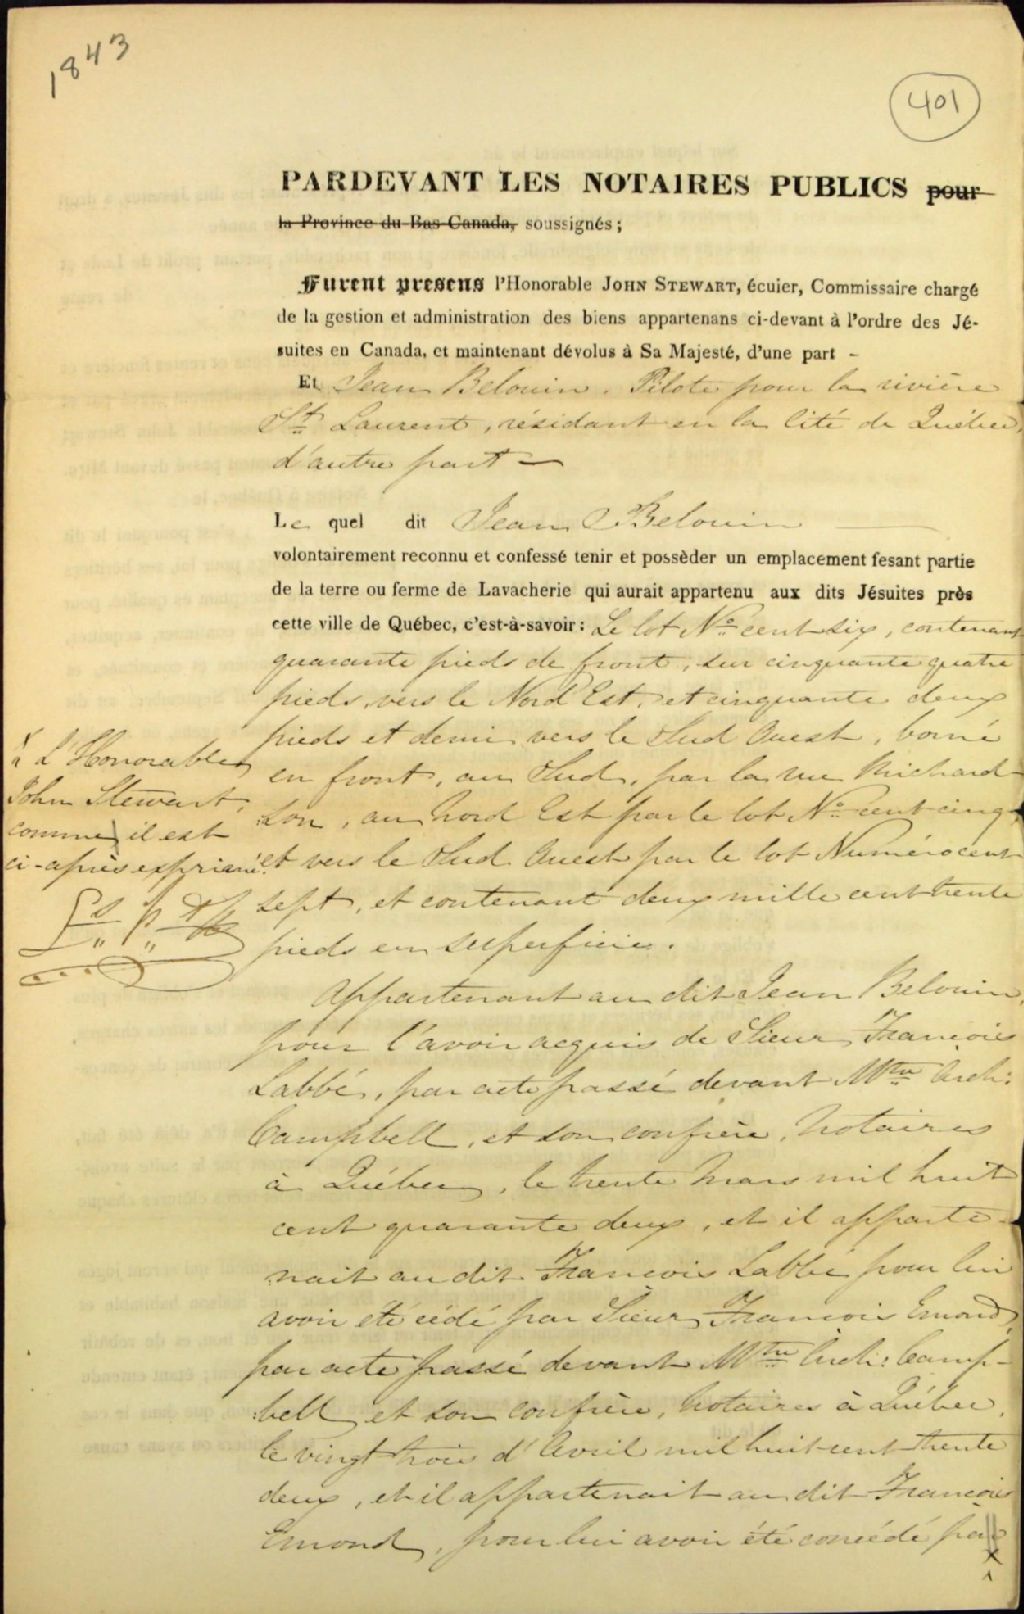 1843
401
PARDEVANT LES NOTAIRES PUBLICS pour
la Province du Bas Canada, soussignés;
Furent presens l'Honorable JOHN STEWART, écuier, Commissaire chargé
de la gestion et administration des biens appartenans ci-devant à l'ordre des Jé-
suites en Canada, et maintenant dévolus à Sa Majesté, d'une part -
Et Jean Belouin. Pilote pour la rivière
St Laurent, résidant en la Cité de Québec,
d'autre part —
Le quel dit Jean Belouin
volontairement reconnu et confessé tenir et possèder un emplacement fesant partie
de la terre ou ferme de Lavacherie qui aurait appartenu aux dits Jésuites près
cette ville de Québec, c'est-à-savoir: Le lot No cent six, contenant
quarante pieds de front, sur cinquante quatre
pieds vers le Nord Est, et cinquante deux
pieds et demi vers le Sud Ouest, borné
en front, au Sud, par la rue Richard
son, au Nord Est par le lot No cent cinq,
et vers le Sud Ouest par le lot Numéro cent
sept, et contenant deux mille cent trente
pieds en superficie.
x à L'Honorable
John Stewart,
comme il est
ci-après exprimé.
Appartenant au dit Jean Belouin,
pour l'avoir acquis de Sieur François
Labbé, par acte passé devant Mtre Arch:
Campbell, et son confrère, Notaires
à Québec, le trente Mars mil huit
cent quarante deux, et il apparte-
nait au dit François Labbé pour lui
avoir été cédé par Sieur François Emond,
par acte passé devant Mtre Arch: Camp-
bell et son confrère, Notaires à Québec,
le vingt trois d'Avril mil huit cent trente
deux, et il appartenait au dit François
Emond, pour lui avoir été concédé par
x